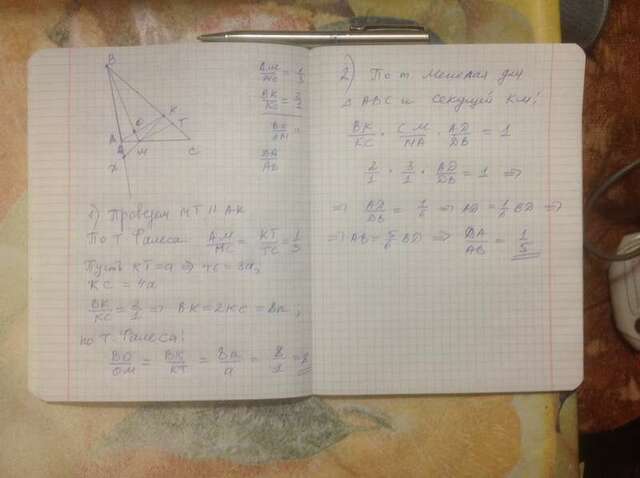 B
K
O
T
A
M
C
X
AM/MC = 1/3
BK/KC = 2/1
BO/OM =
DA/AB
1) Проведём MT || AK
По т. Фалеса: AM/MC = KT/TC = 1/3
Пусть KT = a ⇒ TC = 3a,
KC = 4a
BK/KC = 2/1 ⇒ BK = 2KC = 8a;
по т. Фалеса:
BO/OM = BK/KT = 8a/a = 8/1 = 8
2) По т. Менелая для
△ ABC и секущей KM:
BK/KC · CM/MA · AD/DB = 1
2/1 · 3/1 · AD/DB = 1 ⇒
⇒ AD/DB = 1/6 ⇒ AD = 1/6 BD ⇒
⇒ AB = 5/6 BD ⇒ DA/AB = 1/5